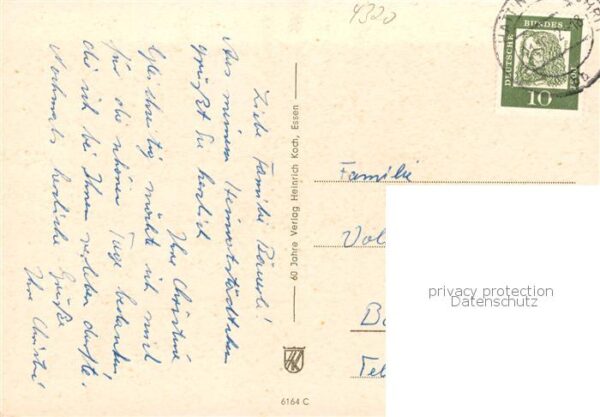 4320
DEUTSCHE BUNDES
10
Liebe Familie Bäuerle!
Aus meinem Heimatstädtchen
grüßt Sie herzlich
Ihre Christine
Gleichzeitig möcht ich mich
für die schönen Tage bedanken,
die ich bei Ihnen verleben durfte.
Nochmals herzliche Grüße
Ihre Christine
60 Jahre Verlag Heinrich Koch, Essen
HK
6164 C
Familie
Vol
Ba
Tel
privacy protection
Datenschutz